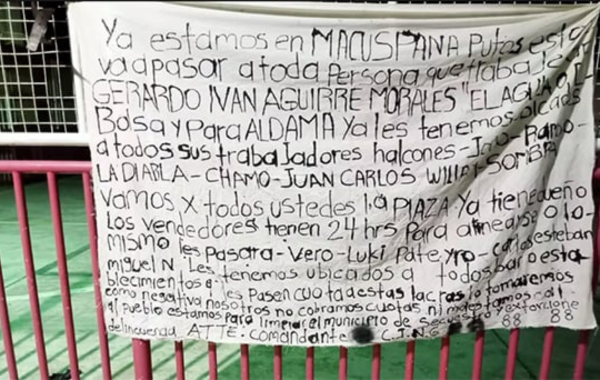 Ya estamos en MACUSPANA Putos esto
va a pasar a toda Persona que traba
GERARDO IVAN AGUIRRE MORALES "EL
Bolsa y Para ALDAMA Ya les tenemos
a todos sus trabajadores halcones-
LA DIABLA-CHAMO-JUAN CARLOS
vamos X todos ustedes la PLAZA Ya tiene dueño
Los vendedores tienen 24 hrs Para alinearse o lo-
mismo les Pasara-Vero-Luki Pate,yro-Carlos esteban
miguel N. Les tenemos ubicados a todos bar o esta-
blecimientos q les Pasen cuota a estas lacras lo tomaremos
como negativa nosotros no cobramos cuotas ni
al Pueblo estamos para limpiar el municipio de Secuestro y extorcion e
delincuencia ATTE. Comandante C.J.N.G 88 88